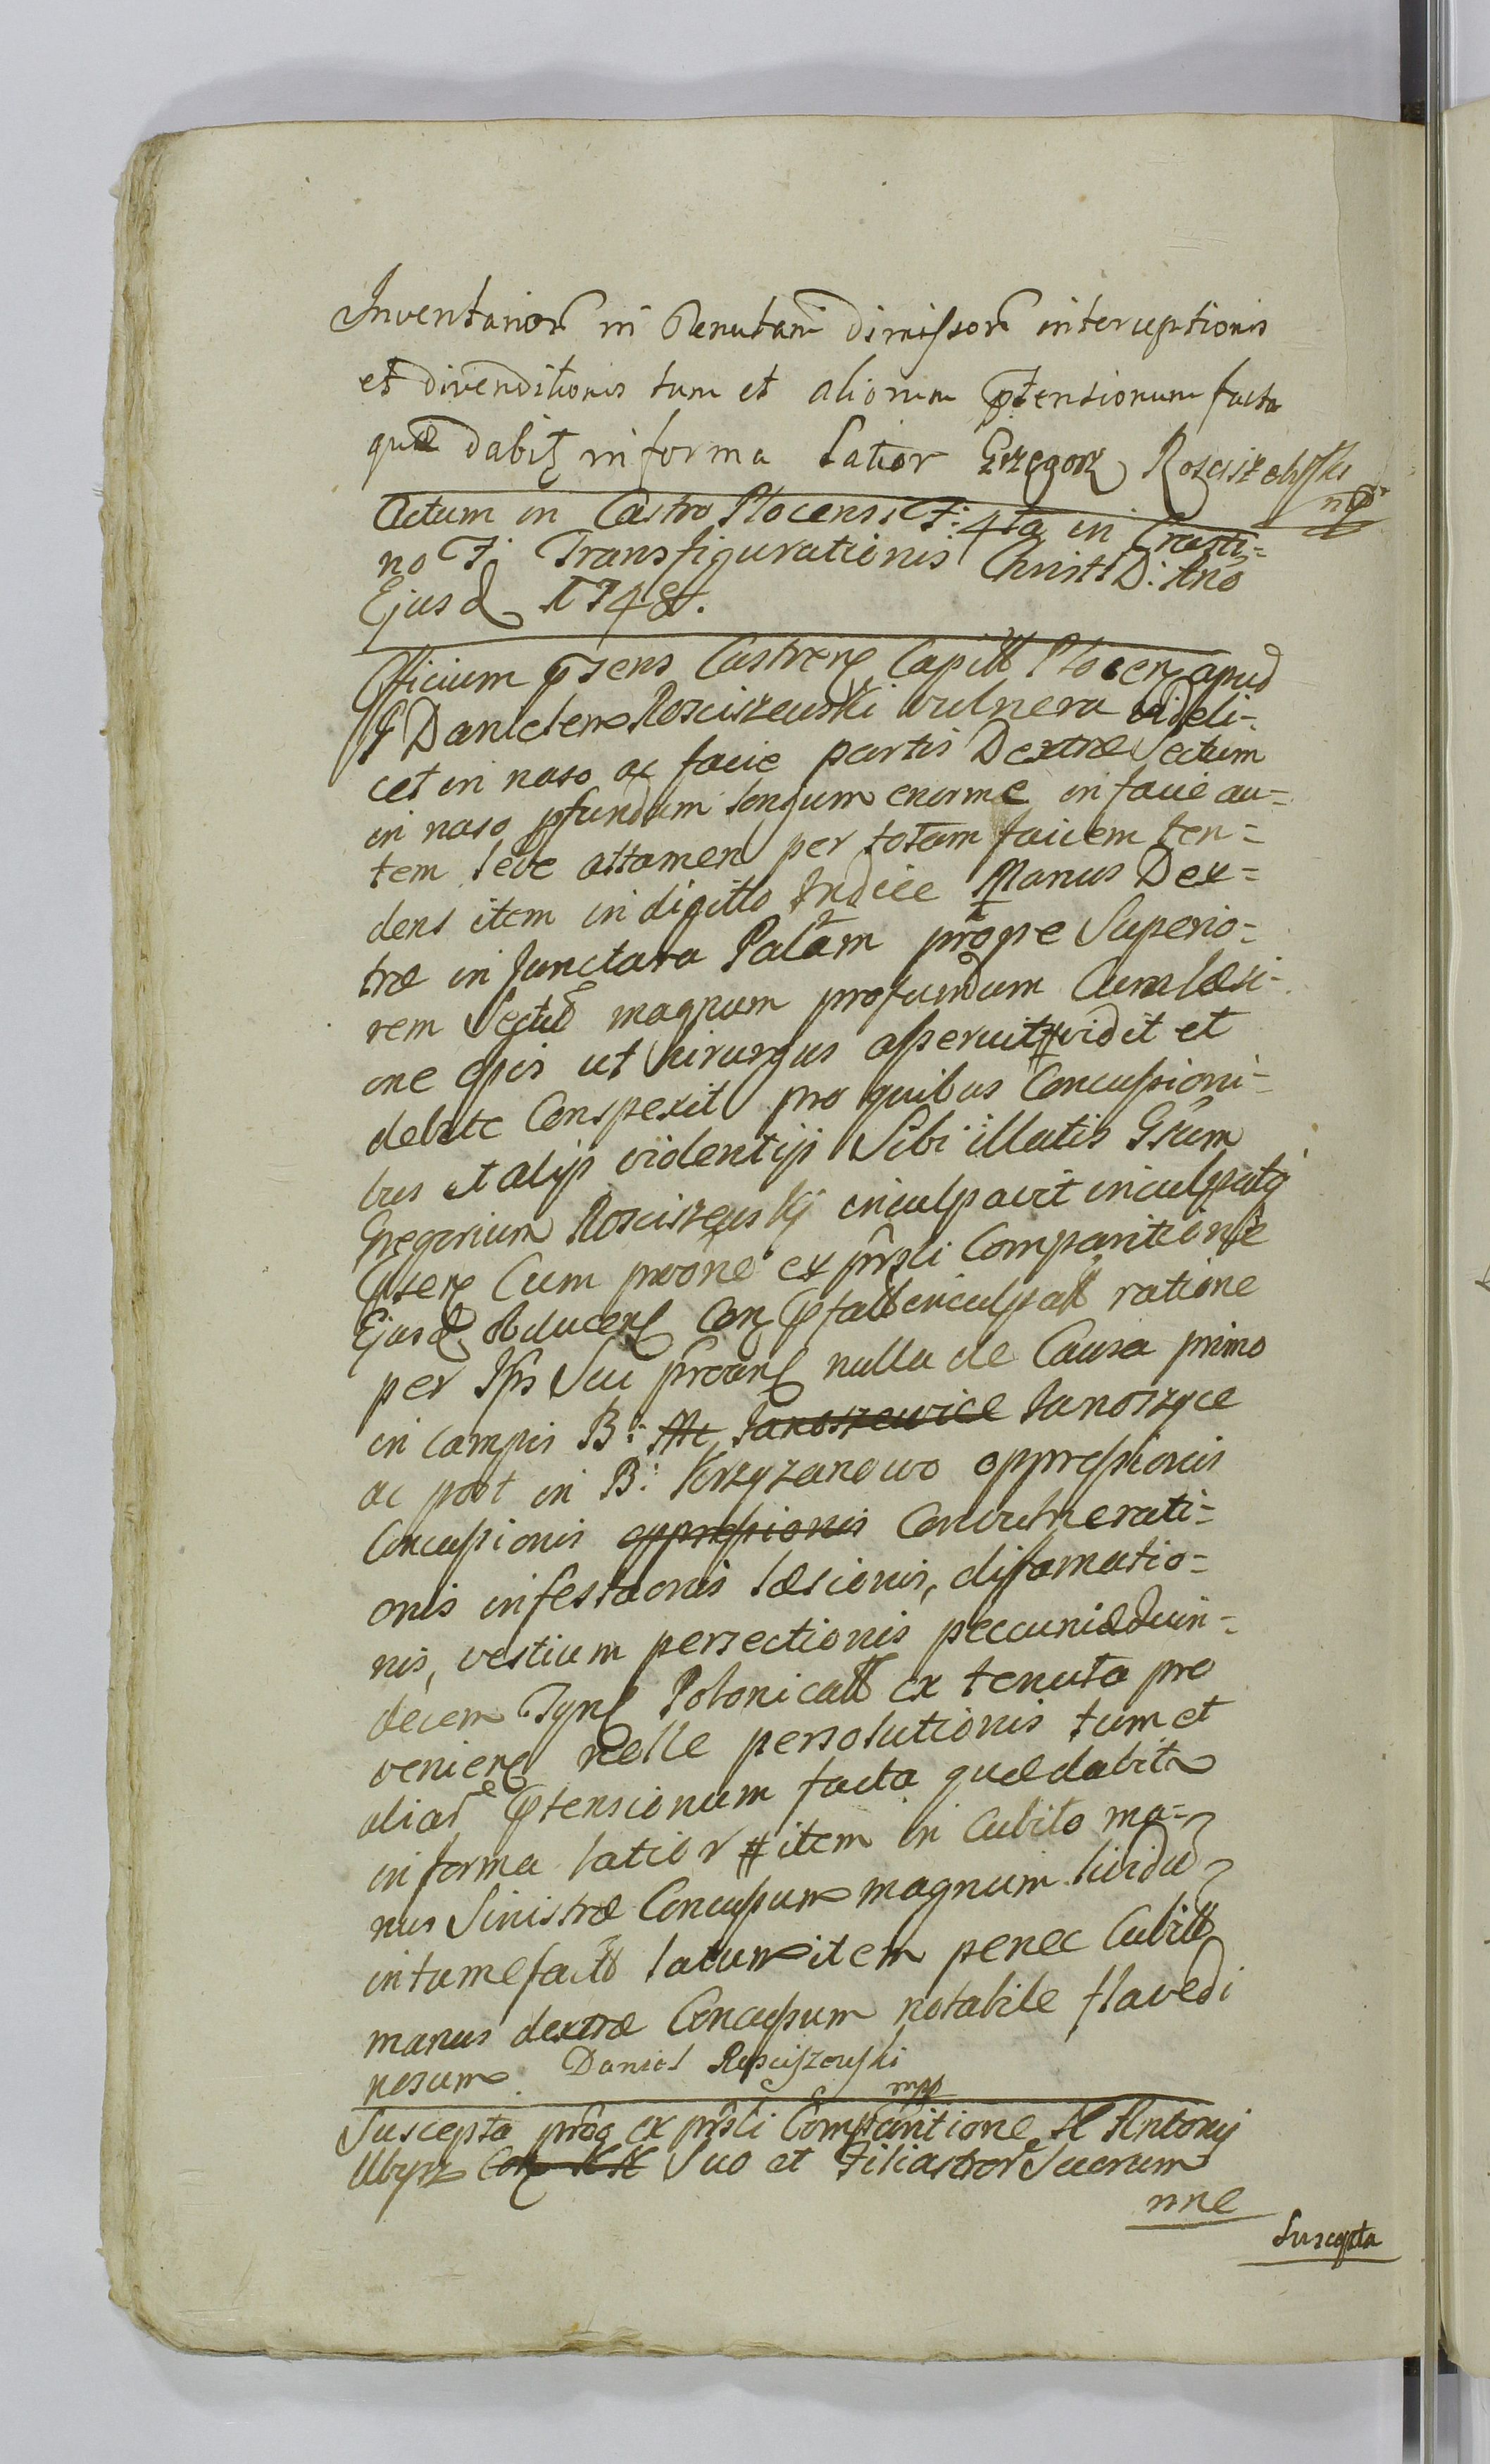 Inventarior in Tenutam dimissor interceptionis
et divenditionis tum et aliorum ptensionum facta
quæ dabit informa latior Grzegorz Rosciszewski
mp
Actum in Castro Plocensi F: 4ta in Crasti=
no F: Transfigurationis Christi D: Ano
Ejusd 1748.
Officium psens Castren Capitt Plocen apud
G Danielem Rosciszewski vulnera videli=
cet in naso ac facie partis Dextræ Sectum
in naso pfundum longum enorme in facie au=
tem leve attamen per totam faciem ten=
dens item in digitto Indice Manus Dex=
træ in Junctura Palam prope Superio=
rem Sectū magnum profundum Cum læsi=
one epis ut Chirurgus asseruit # vidit et
debite Conspexit pro quibus Concussioni=
bus et alijs violentijs Sibi illatis Gsum
Gregorium Rosciszewskj inculpavit inculpatq
Psen Cum prone ex prsli Comparitione
Ejusd Obducen Con Pfatt inculpatt ratione
per Ips Sui proan nulla de Causa primo
in campis B: Janoszewice Janoszyce
ac post in B: Krzyzanowo oppressionis
Concussionis oppressionis Convulnerati=
onis infestaonis læsionis, diffamatio=
nis, vestium persectionis peccuniæ Quin=
decem Tynf Polonicatt ex tenuta pro
venien nelle persolutionis tum et
aliar Ptensionum facta quæ dabit
informa latior # item in Cubito ma=
nus Sinistræ Concussum magnum lividū
intumefactt latum item penec Cubitt
manus dextræ Concussum notabile flavedi
nosum. Daniel Rosciszewski
mpp
Suscepta proq ex prsli Comparitione M Antonij
Con M M Suo et Filiastror Suorum
nne
Suscepta